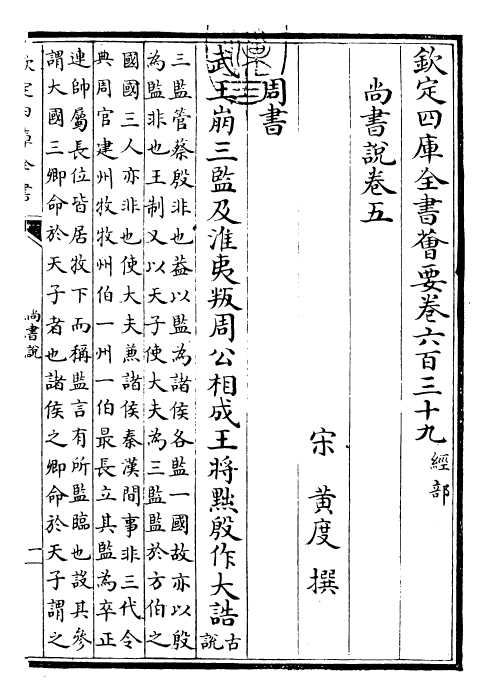 欽定四庫全書薈要卷六百三十九 經部
尚書說卷五
宋 黃度 撰
周書
武王崩三監及淮夷叛周公相成王將黜殷作大誥 古說
三監管蔡殷非也蓋以監為諸侯各監一國故亦以殷
為監非也王制又以天子使大夫為三監監於方伯之
國國三人亦非也使大夫蕪諸侯秦漢間事非三代令
典周官建州牧牧州伯一州一伯最長立其監為卒正
連帥屬長位皆居牧下而稱監言有所監臨也設其參
謂大國三卿命於天子者也諸侯之卿命於天子謂之
尚書說
一